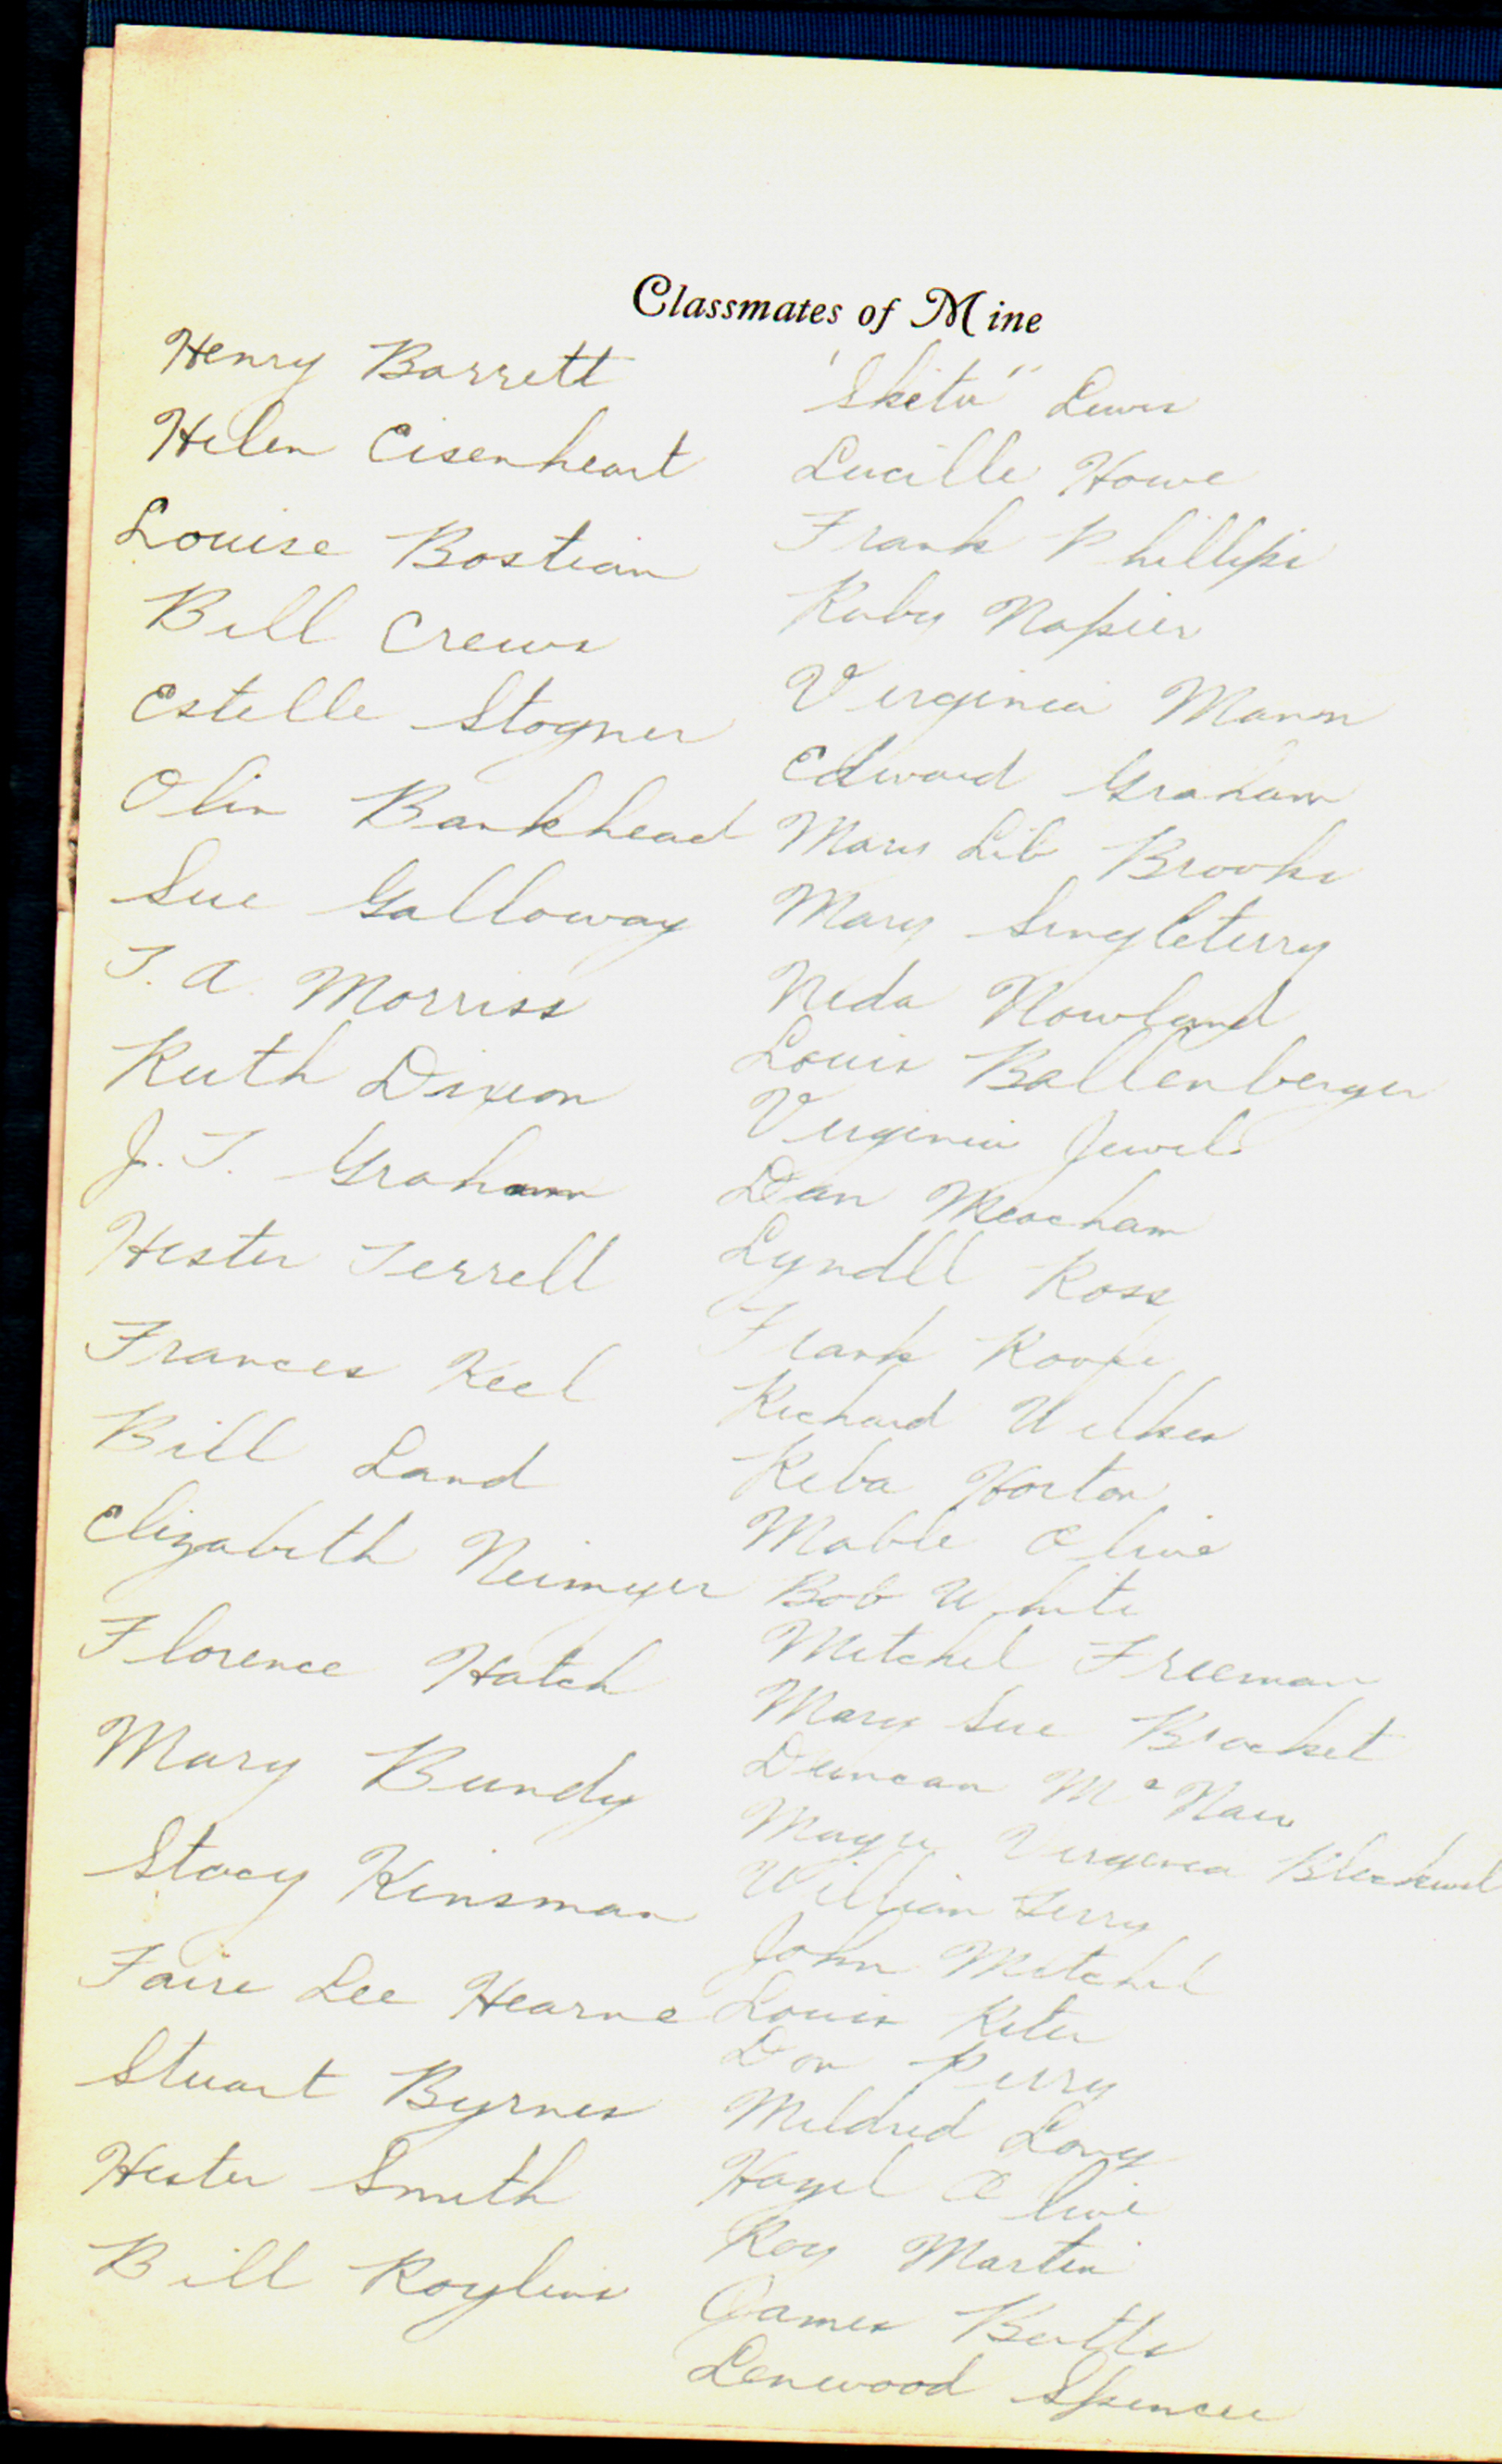 Classmates of Mine
Henry Barrett
Helen Eisenheart
Louise Bostian
Bill Crews
Estelle Stogner
Olin Bankhead
Sue Galloway
T. A. Morriss
Ruth Dixon
J. T. Graham
Hester Terrell
Frances Keel
Bill Land
Elizabeth Neimeyer
Florence Hatch
Mary Bundy
Stacy Kinsman
Faire Lee Hearne
Stuart Byrnes
Hester Smith
Bill
"Sketer" Lewis
Lucille Howe
Frank Phillips
Ruby Napier
Virginia Mann
Edward Graham
Mary Lib Brooks
Mary Singleterry
Neda Nowland
Louis Ballenberger
Virginia Jewel
Dan Meacham
Lyndll Ross
Frank
Richard
Reba Horton
Mable Olive
Bob White
Mitchel Freeman
Mary Sue Brocket
Duncan
Virginia
William Terry
John Mitchel
Louis
Don Perry
Mildred Long
Hazel Olive
Roy Martin
James Butts
Lenwood Spencer